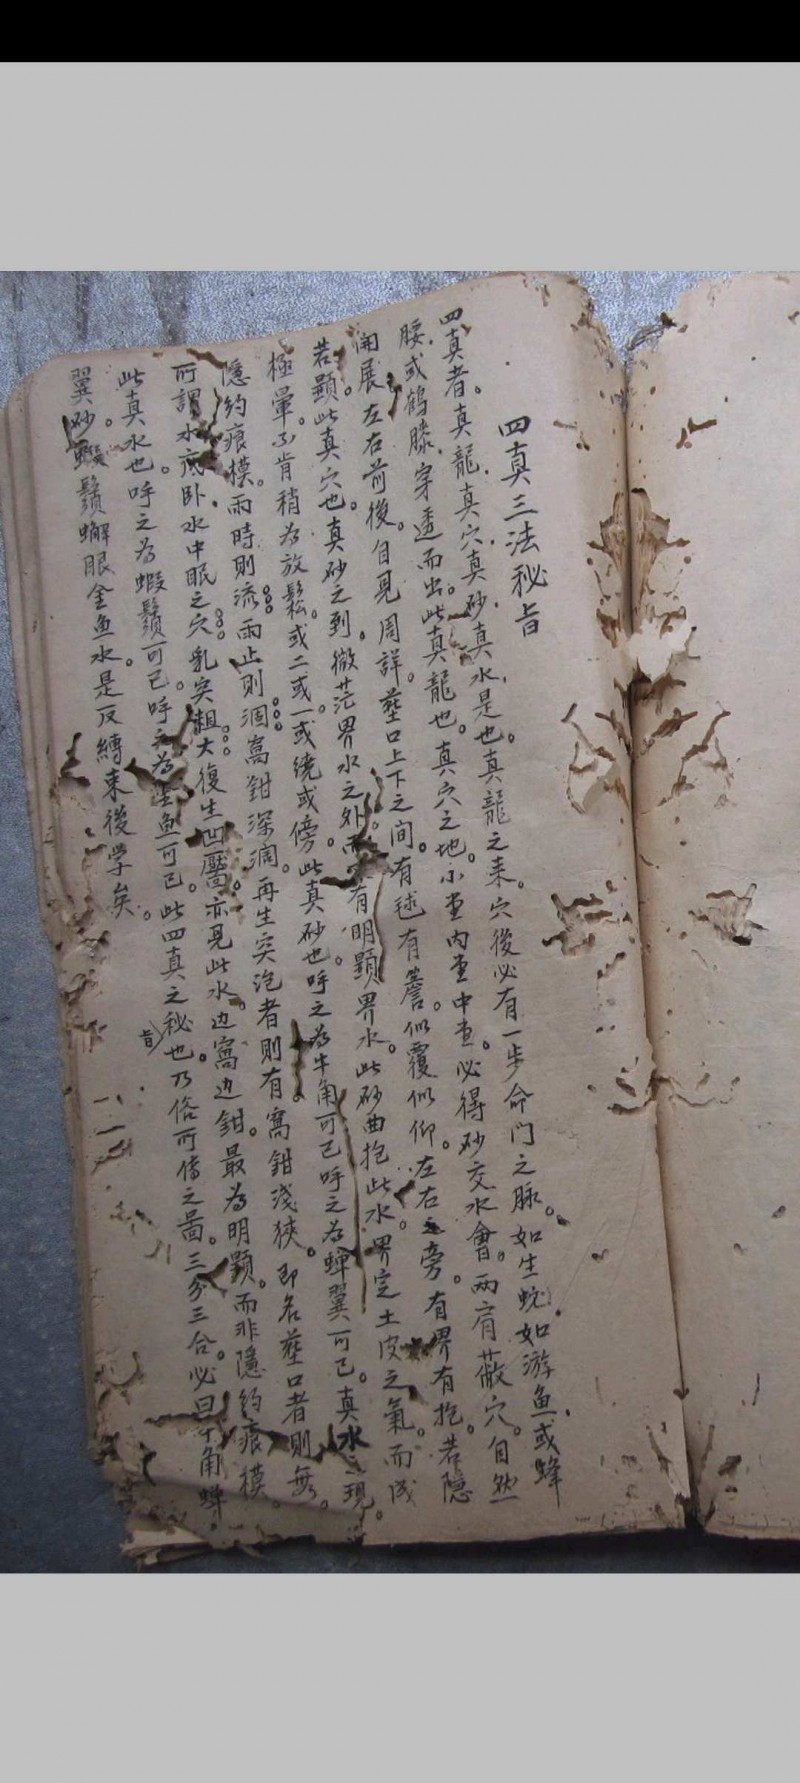 四真三法秘旨
四真者。真龍真穴真砂真水是也。真龍之来。穴後必有一步命门之脉。如生蛇如游鱼或蜂
腰或鹤膝穿透而出。此真龍也。真穴之地。小查内查中查。必得砂交水會。两肩蔽穴。自然
開展左右前後。自見周詳。塟口上下之间。有毬有簷。似覆似仰。左右之旁。有界有抱。若隱
若顕。此真穴也。真砂之到。微茫界水之外。有明顕界水。此砂曲抱此水。界定土皮之氣。而成
極暈。不肯稍为放鬆。或二或一或绕或傍。此真砂也。呼之为牛角可已。呼之为蝉翼可已。真水之現。
隱约痕模。雨時則流。雨止則涸。窩鉗深濶。再生突泡者則有。窩鉗淺狹。即名塟口者則無。
所謂水底卧。水中眠之穴。乳突粗大。復生凹靨。亦見此水。边窩边鉗。最为明顕。而非隱约痕模。
此真水也。呼之为蝦鬚可已。呼之为鱼可已。此四真之秘也。乃俗所传之啚。三分三合。必曰角蝉
翼。砂蝦鬚蠏眼金鱼水。是反縛束後学矣。
旨